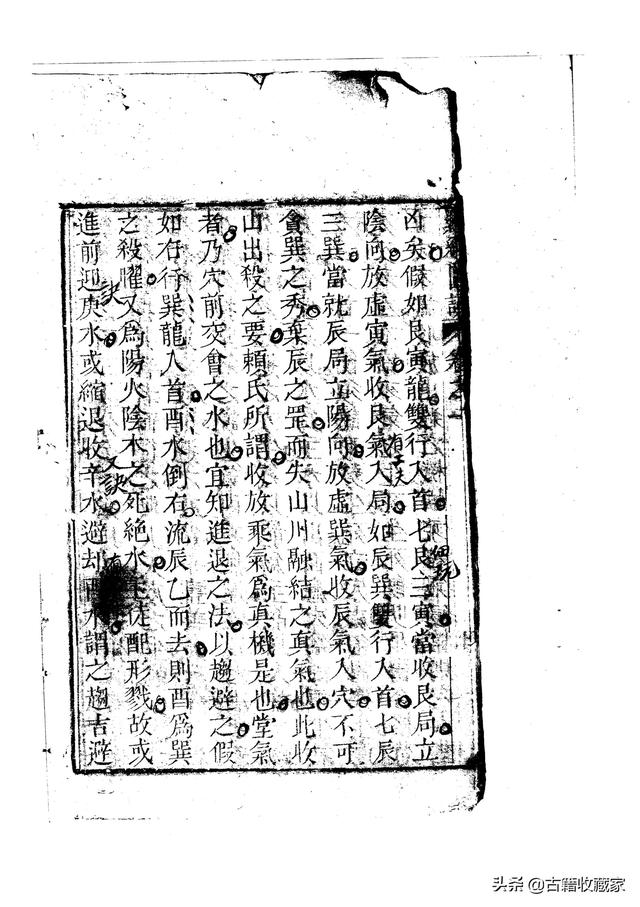 凶矣假如艮寅龍雙行入首七艮三寅當收艮局立
細玩
陰向放虛寅氣收艮氣入局如辰巽雙行入首七辰
三巽當就辰局立陽向放虛巽氣收辰氣入穴不可
貪巽之秀棄辰之罡而失山川融結之真氣也此收
山出殺之要賴氏所謂收放乘氣爲真機是也堂氣
者乃穴前交會之水也宜知進退之法以趨避之假
如右行巽龍入首酉水倒右流辰乙而去則酉爲巽
之殺曜又爲陽火陰木之死絕水主徒配形戮故或
訣
又訣
進前迎庚水或縮退收辛水避却酉水謂之趨吉避
头条@古籍收藏家